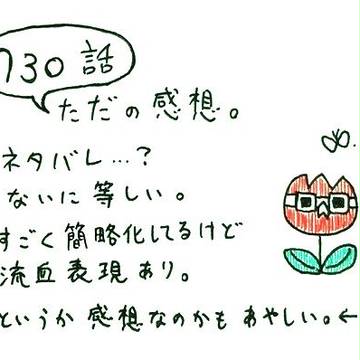 730話
ただの感想。
ネタバレ…?
ないに等しい。
すごく簡略化してるけど
流血表現あり。
というか感想なのかもあやしい。←